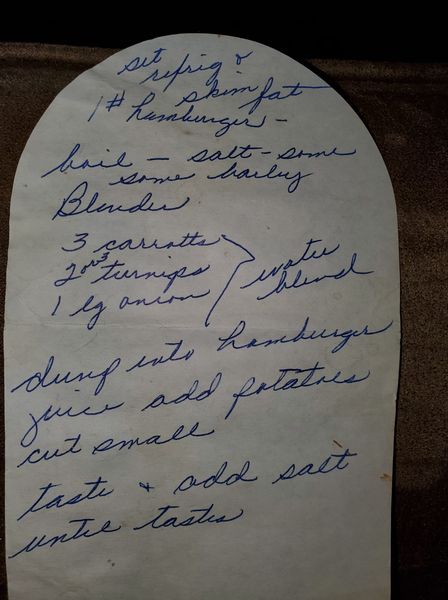 set
refrig &
skim fat
1# hamburger -
boil - salt - some
some barley
Blender
3 carrotts
2 or 3 turnips
1 lg onion
water
blend
dump into hamburger
juice add potatoes
cut small
taste & add salt
until tastes